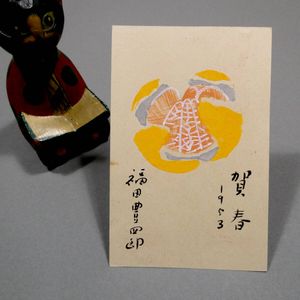 賀春
1953
福田豊四郎